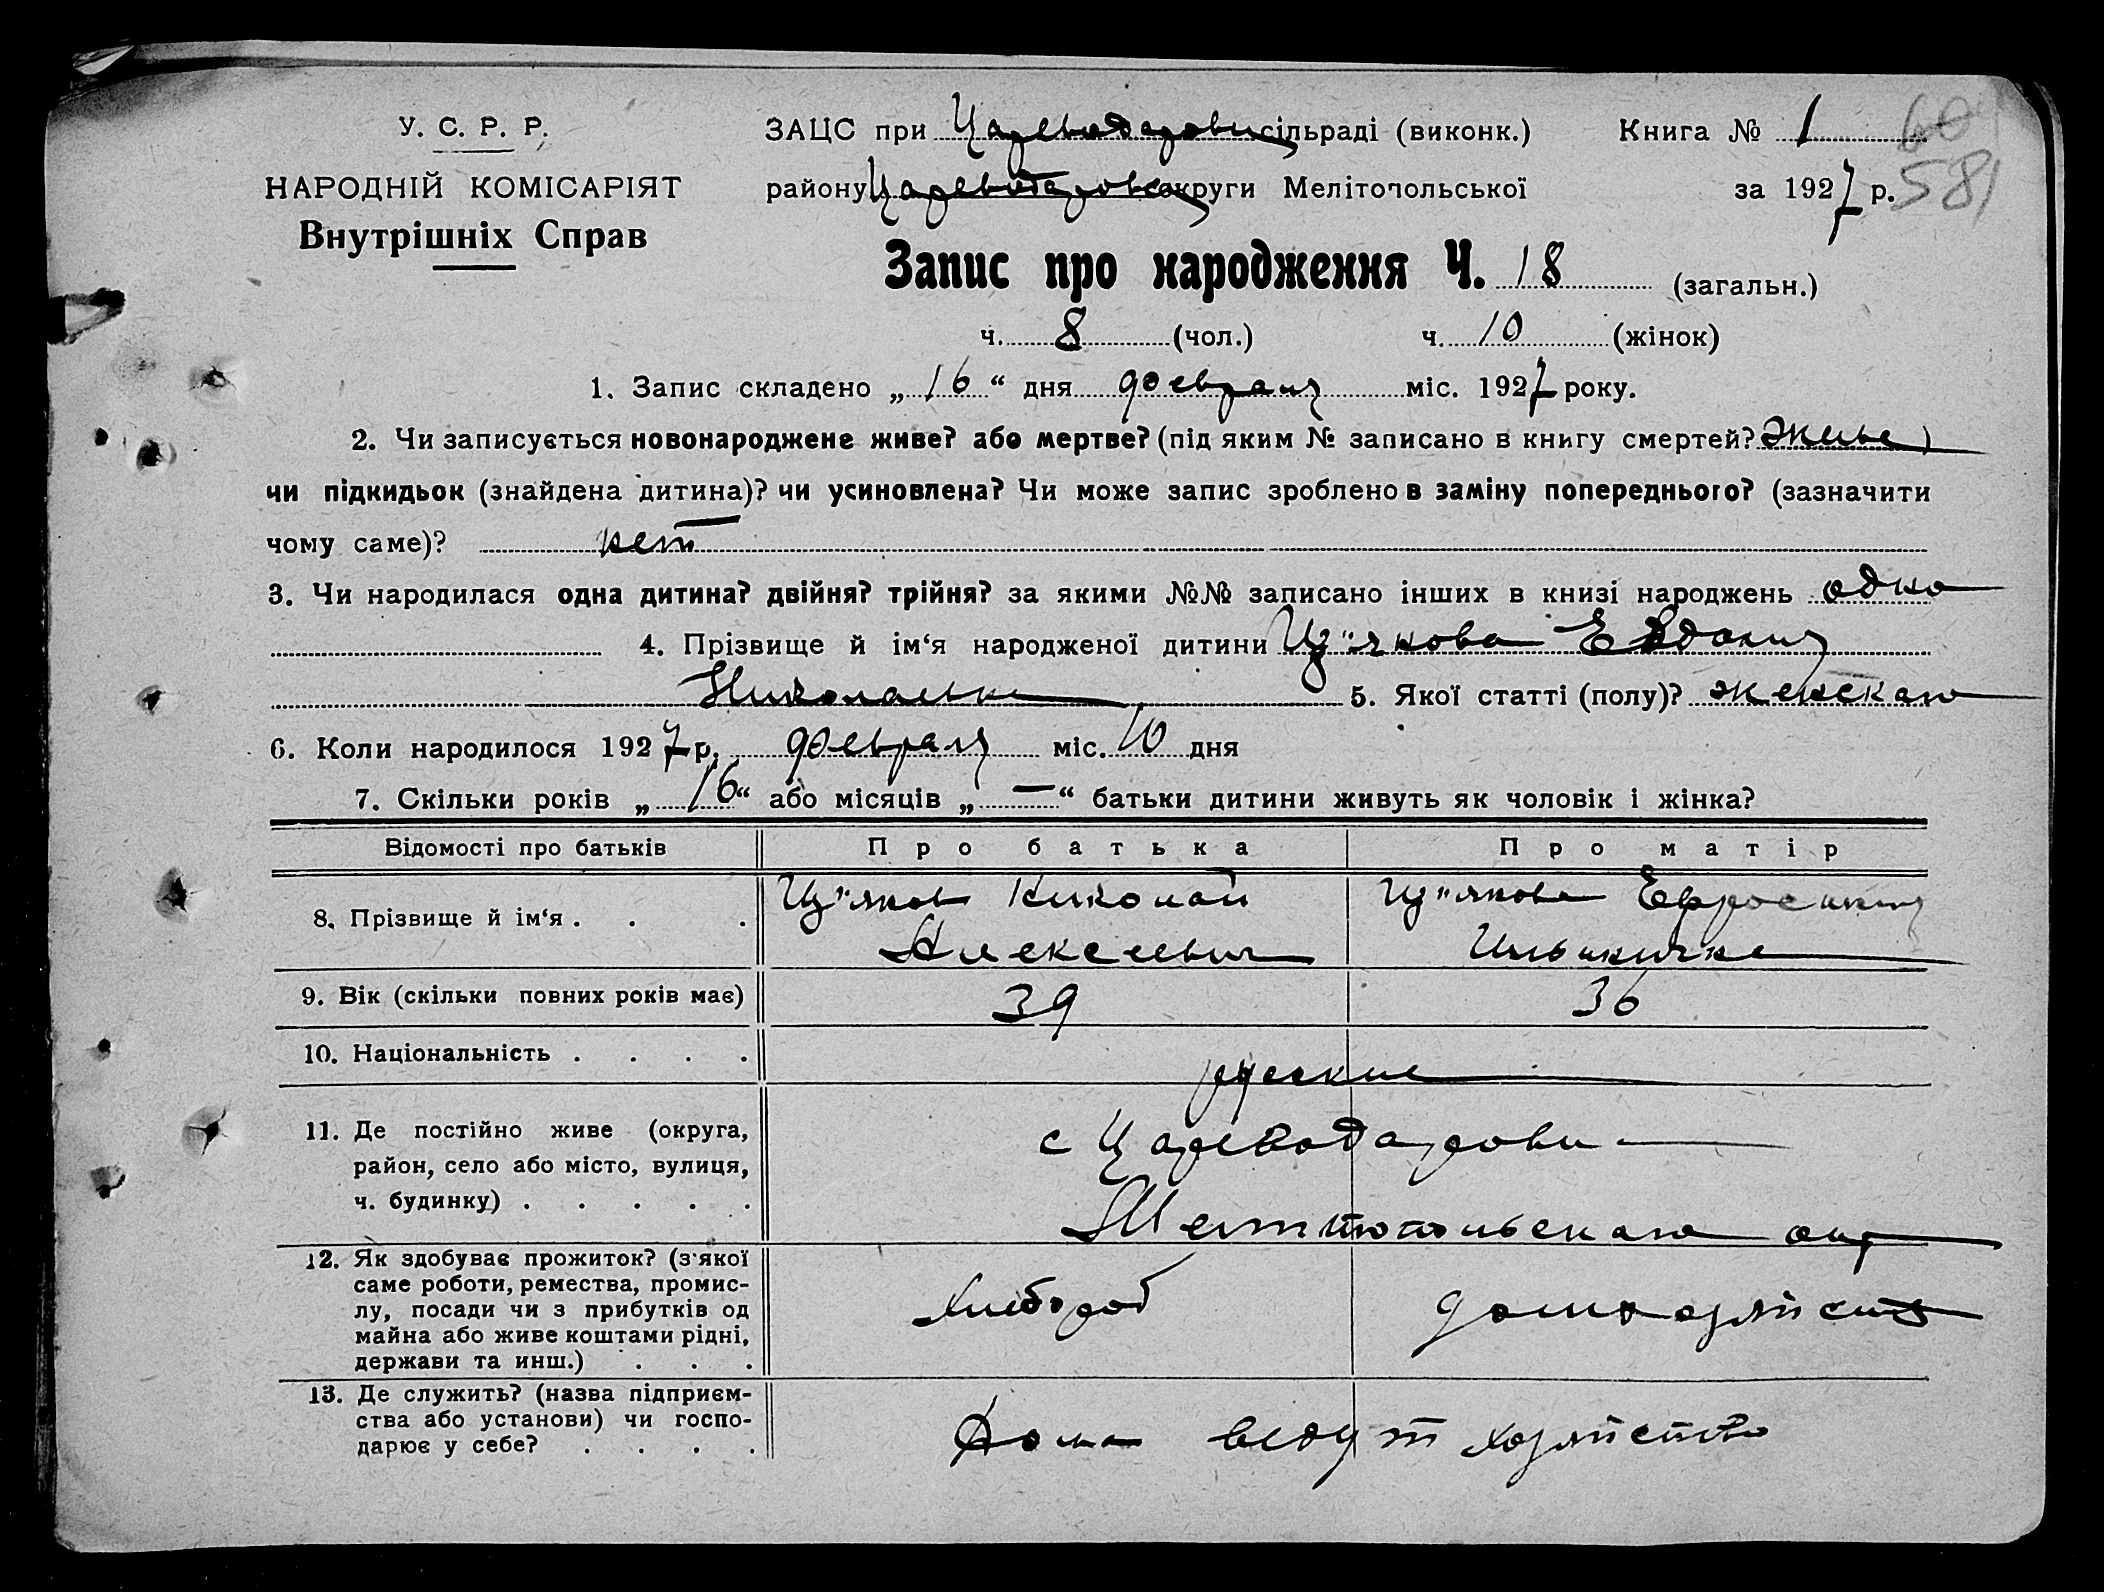 У. С. Р. Р.
НАРОДНІЙ КОМІСАРІЯТ
Внутрішніх Справ
ЗАЦС при Цареводаровск сільраді (виконк.) Книга № 1
60
району Цареводаровск округи Мелітопольської за 1927 р.
581
Запис про народження Ч. 18 (загальн.)
ч. 8 (чол.) ч. 10 (жінок)
1. Запис складено „ 16 “ дня февраля міс. 1927 року.
2. Чи записується новонароджене живе? або мертве? (під яким № записано в книгу смертей? живе)
чи підкидьок (знайдена дитина)? чи усиновлена? Чи може запис зроблено в заміну попереднього? (зазначити
чому саме)? нет
3. Чи народилася одна дитина? двійня? трійня? за якими №№ записано інших в книзі народжень одно
4. Прізвище й ім‘я народженої дитини Евдокия
Николаевна 5. Якої статті (полу)? женскаго
6. Коли народилося 1927 р. февраля міс. 10 дня
7. Скільки років „ 16 “ або місяців „ — “ батьки дитини живуть як чоловік і жінка?
Відомості про батьків Про батька Про матір
8. Прізвище й ім‘я . . . Николай Ефросиния
Алексеевич Ильинична
9. Вік (скільки повних років має) 39 36
10. Національність . . . . русские
11. Де постійно живе (округа,
район, село або місто, вулиця,
ч. будинку) . . . . .
с Царевода
Мелитопольскаго окр
12. Як здобуває прожиток? (з’якої
саме роботи, ремества, промис-
лу, посади чи з прибутків од
майна або живе коштами рідні,
держави та инш.) . . .
хлебороб домохозяйств
13. Де служить? (назва підприєм-
ства або установи) чи госпо-
дарює у себе? . . . .
Дома ведут хозяйство